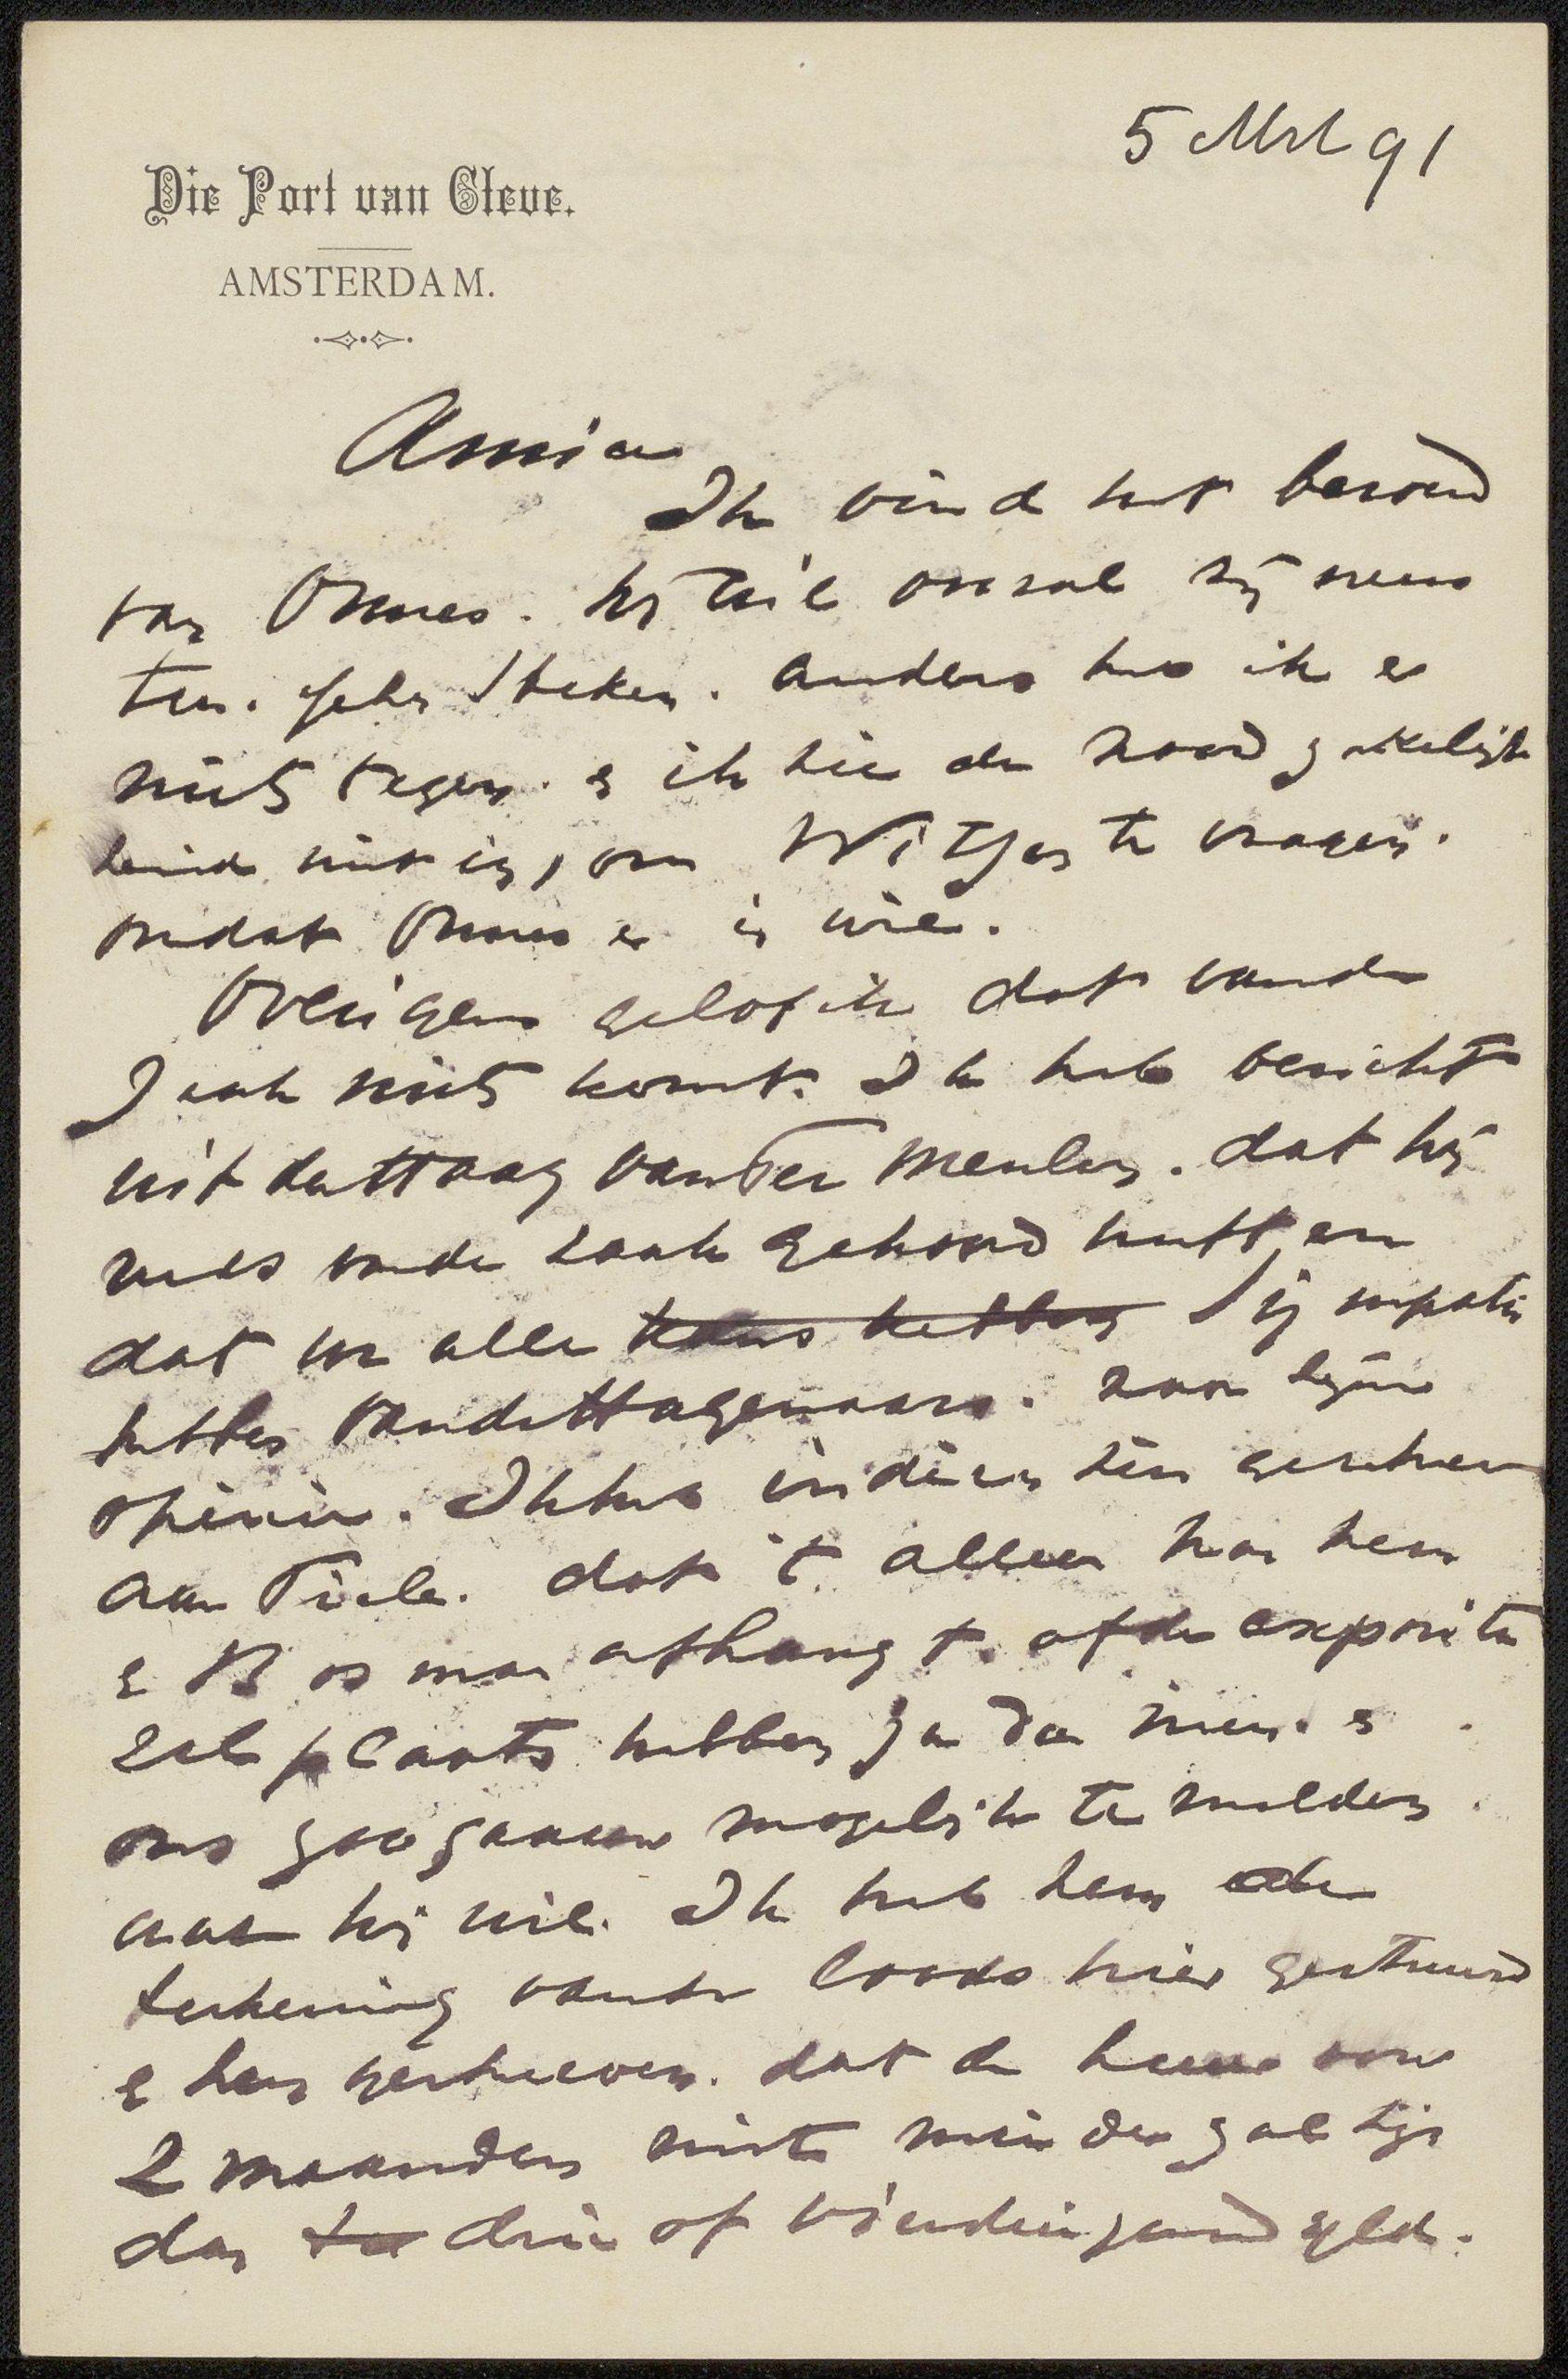 5 Mrt 91
Die Port van Cleve.
AMSTERDAM.
Amice
Ik vind het beroerd
van Onnes. hij wil overal zij neus
ten. steken. anders heb ik er
niets tegen. & ik zie de noodzakelijk
heid niet in, om Witsen te vragen.
omdat Onnes er in wil.
Overigens geloof ik dat van de
zaak niets komt. Ik heb bericht
uit den Haag van Ter Meulen. dat hij
niets van de zaak gehoord heeft, en
dat we alle kans hebben Sympathie
hebben van de Hagenaars. naar zijne
opinie. Ik heb indien zin geschreven
aan Tiele. dat 't alleen van hem
& Bosman afhangt. of de expositie
zal plaats hebben ja dan neen. &
ons zoo gaauw mogelijk te melden.
wat hij wil. Ik heb hem de
tekening van de loods hier gestuurd
& hem geschreven. dat de huur voor
2 maanden niet minder zal zijn
dan drie of vierduizend gld.